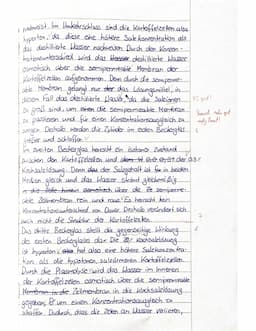 Im Umkehrschluss sind die Kartoffelzellen also
hypoton, da diese eine höhere Salzkonzentration als
das destillierte Wasser nachweisen. Durch den Konzen-
trationsunterschied wird das destillierte Wasser
osmotisch über die semipermeable Membran der
Kartoffelzellen aufgenommen. Denn durch die semiperme-
able Membran gelangt nur das Lösungsmittel, in
diesem Fall das destillierte Wasser, da die
zu groß sind, um ihren die semipermeable Membran
zu passieren und für einen Konzentrationsausgleich zu
sorgen. Deshalb werden die Zylinder im ersten Becherglas
größer und schlaffer.
Im zweiten Becherglas herrscht ein isotoner Zustand
zwischen den Kartoffelzellen und der
Kochsalzlösung. Denn der Salzgehalt ist in beiden
Medien gleich und das Wasser strömt gleichmäßig
die semiperme-
able Zellmembran rein und raus. Es herrscht kein
Konzentrationsunterschied von Dauer. Deshalb verändert sich
auch nicht die Struktur der Kartoffelzellen.
Das dritte Becherglas stellt die gegenseitige Wirkung
des ersten Becherglases dar. Die Kochsalzlösung
ist hyperton, hat also eine höhere Salzkonzentra-
tion als die hypotonen, salzärmeren Kartoffelzellen.
Durch die Plasmolyse wird das Wasser im Inneren
der Kartoffelzellen osmotisch über die semipermeable
Zellmembran in die Kochsalzlösung
gegeben, um einen Konzentrationsausgleich zu
schaffen. Dadurch, dass die Zellen an Wasser verlieren,